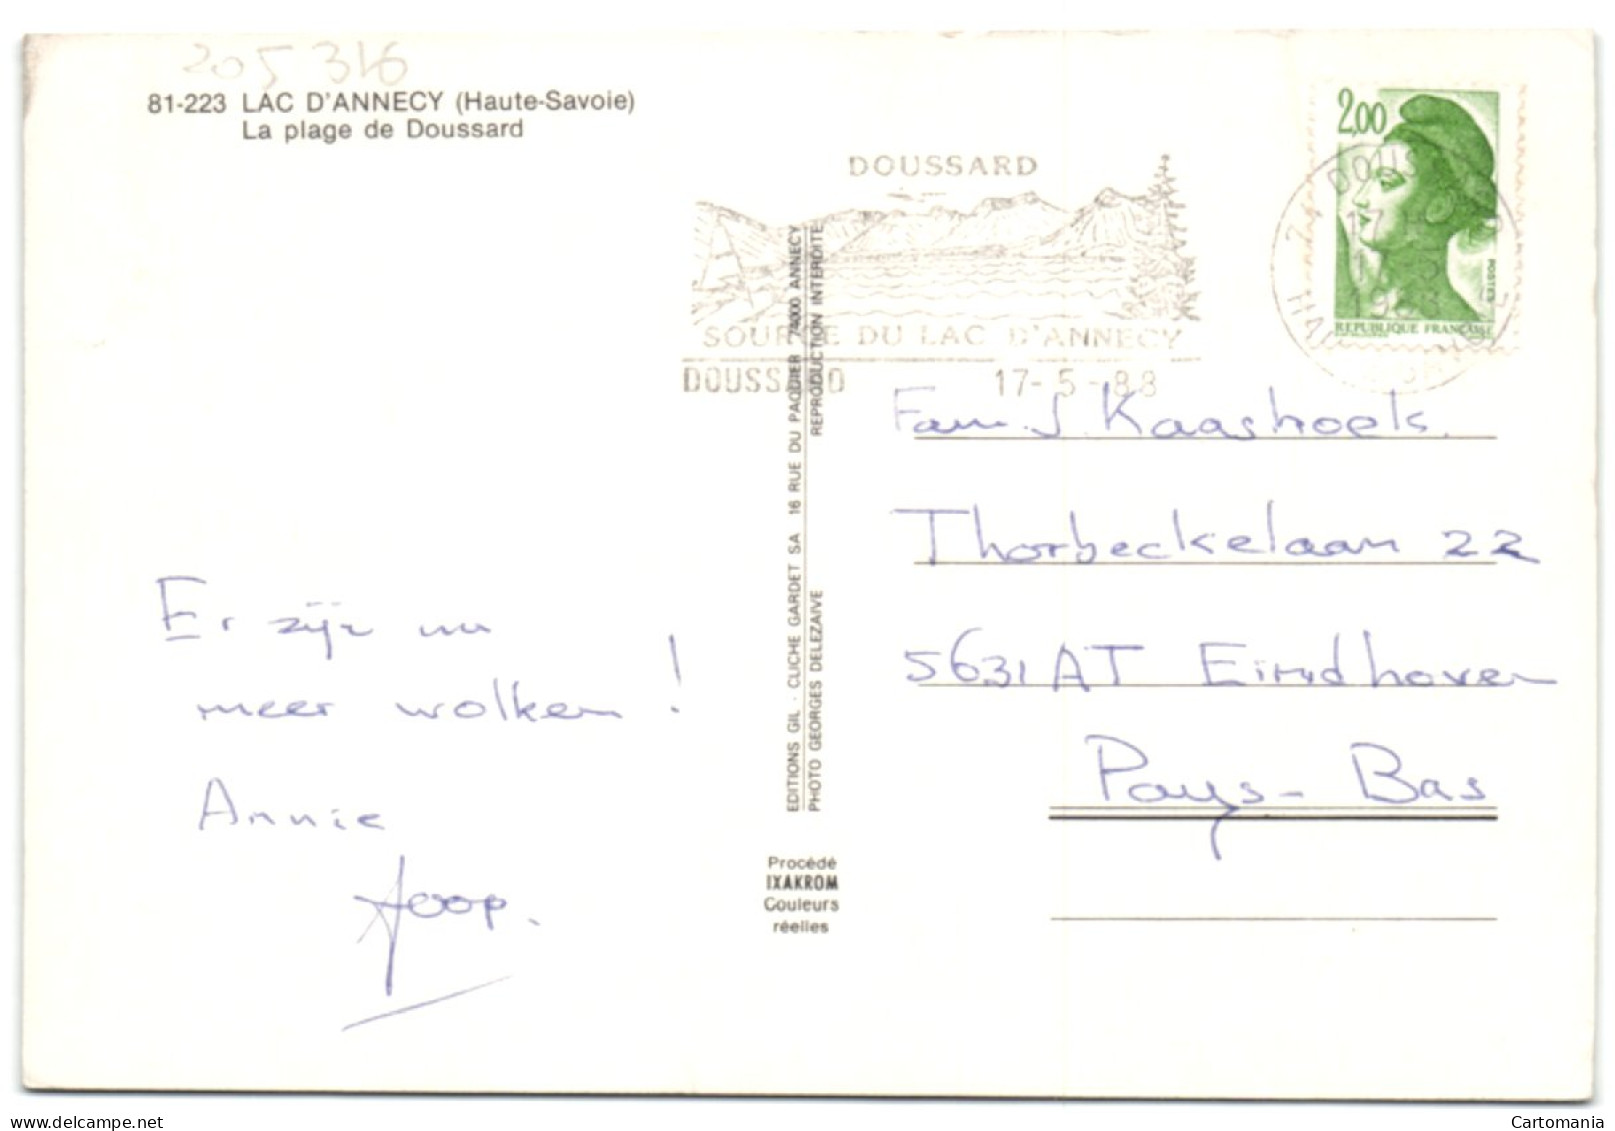 205 316
81-223 LAC D'ANNECY (Haute-Savoie)
La plage de Doussard
DOUSSARD
SOURCE DU LAC D'ANNECY
DOUSSARD 17-5-88
2,00
POSTES
REPUBLIQUE FRANÇAISE
74 DOUSSARD
17 H
1988
EDITIONS GIL - CLICHE GARDET SA 16 RUE DU PAQUIER 74000 ANNECY
PHOTO GEORGES DELEZAIVE REPRODUCTION INTERDITE
Er zijn nu
meer wolken!
Annie
Joop.
Fam. J. Kaashoek.
Thorbeckelaan 22
5631 AT Eindhoven
Pays-Bas
Procédé
IXAKROM
Couleurs
réelles
Cartomania